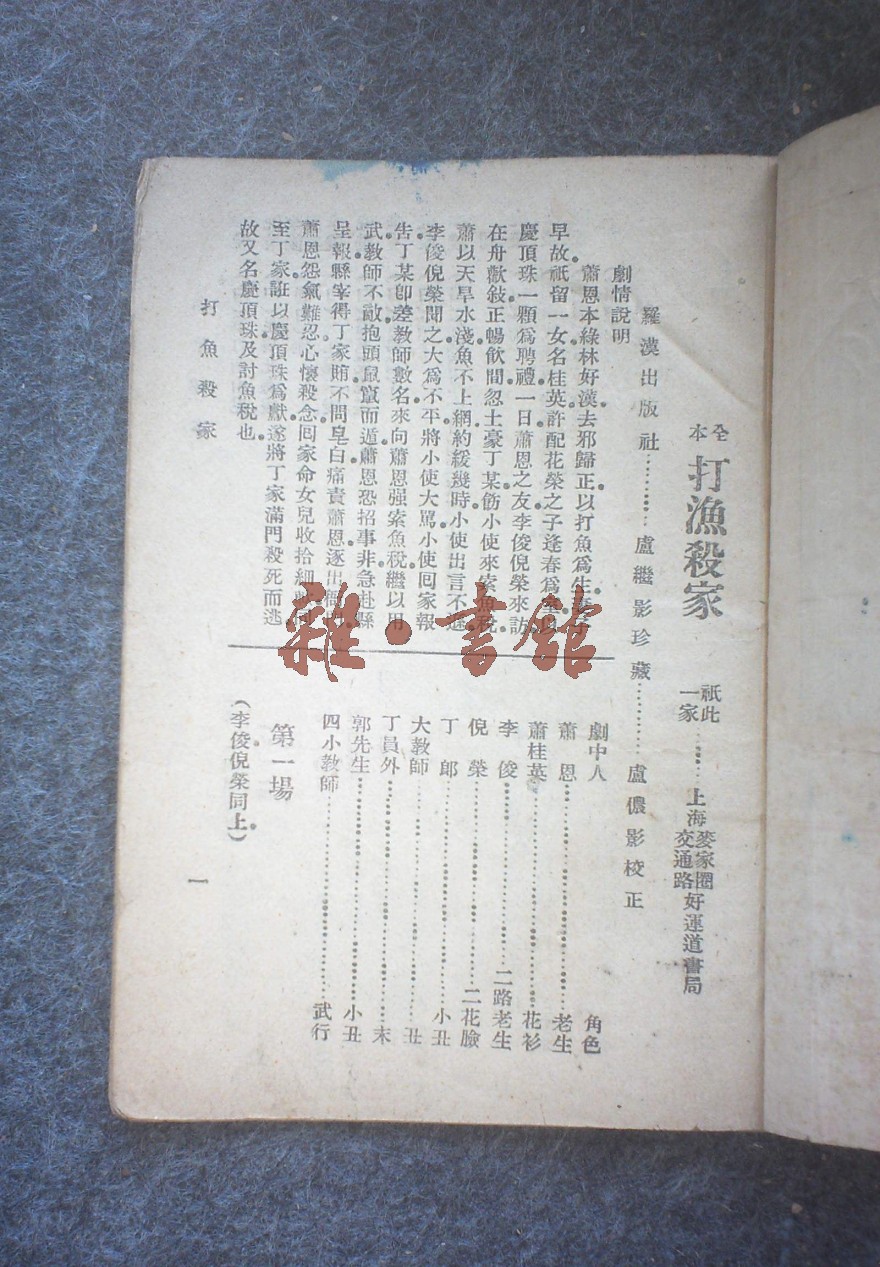 全本
打漁殺家
祇此一家……
上海麥家圈交通路好運道書局
羅漢出版社………盧繼影珍藏………盧儂影校正
劇情說明
蕭恩本綠林好漢。去邪歸正。以打魚爲生。
早故。祇留一女名桂英。許配花榮之子逢春爲
慶頂珠一顆爲聘禮。一日蕭恩之友李俊倪榮來訪。
在舟歡敍。正暢飲間。忽土豪丁某飭小使來索魚稅。
蕭以天旱水淺。魚不上網。約緩幾時。小使出言不遜。
李俊倪榮聞之大爲不平。將小使大罵。小使回家報
告。丁某卽差教師數名。來向蕭恩强索魚稅。繼以用
武。教師不敵。抱頭鼠竄而遁。蕭恩恐招事非。急赴縣
呈報。縣宰得丁家賄。不問皂白。痛責蕭恩。逐出
蕭恩怨氣難忍。心懷殺念。回家命女兒收拾細
至丁家。誑以慶頂珠爲獻。遂將丁家滿門殺死而逃。
故又名慶頂珠及討魚稅也。
劇中人 角色
蕭恩………老生
蕭桂英………花衫
李俊………二路老生
倪榮………二花臉
丁郎………小丑
大教師………丑
丁員外………末
郭先生………小丑
四小教師………武行
第一場
（李俊倪榮同上。）
打魚殺家
一
雜·書館